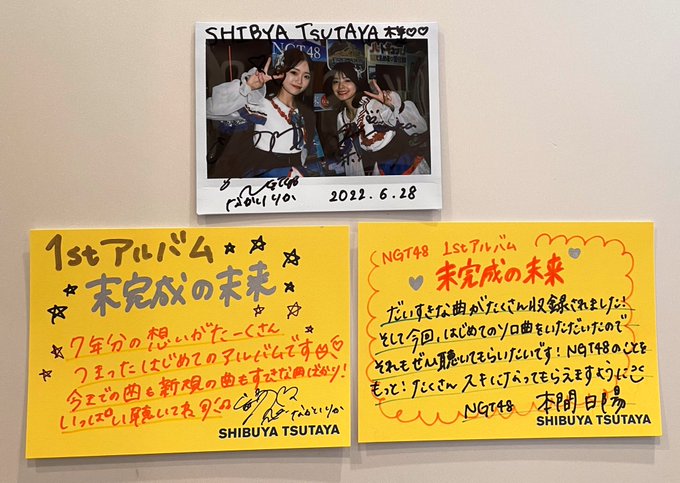 SHIBYA TSUTAYA 様♡♡
NGT48
NGT48
なかいりか
2022.6.28
1stアルバム
未完成の未来
7年分の想いがたーくさん
つまったはじめてのアルバムです
今までの曲も新規の曲もすてきな曲ばかり!
いっぱい聴いてね
なかいりか
SHIBUYA TSUTAYA
NGT48 1stアルバム
未完成の未来
だいすきな曲がたくさん収録されました!
そして今回、はじめてのソロ曲をいただいたので
それもぜひ聴いてもらいたいです!NGT48のことを
もっと!たくさんスキになってもらえますように
NGT48 本間日陽
SHIBUYA TSUTAYA